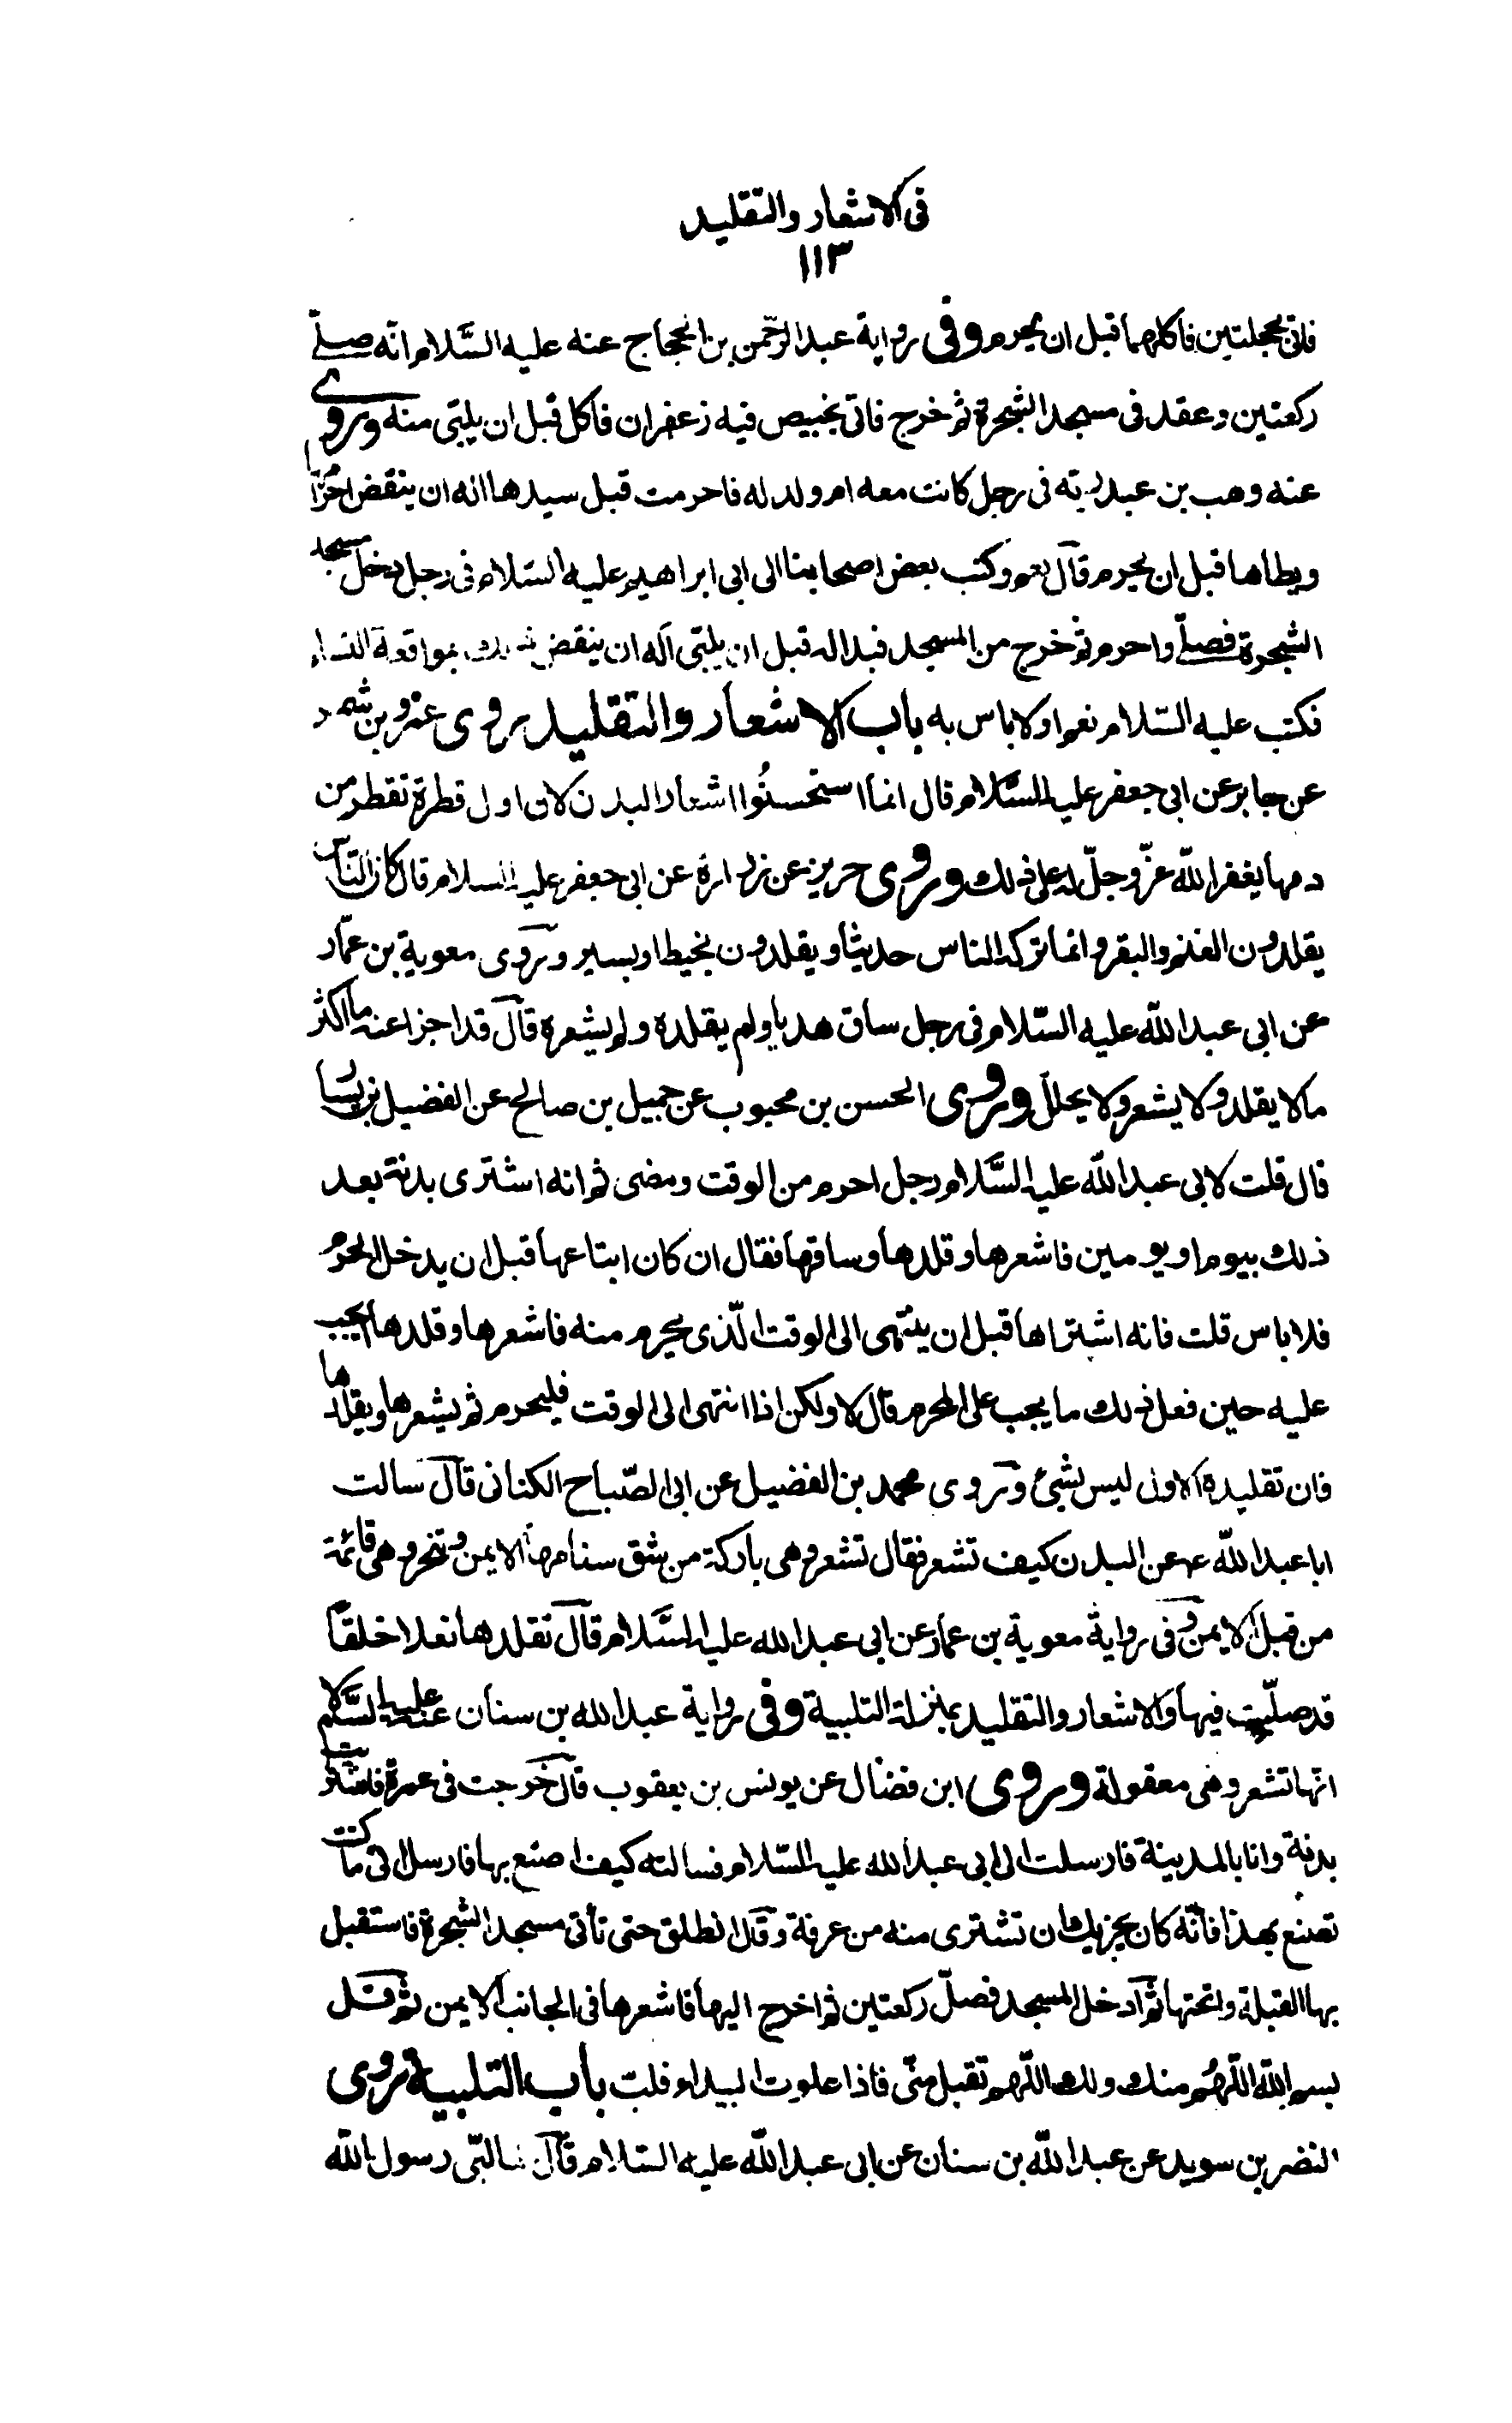 فى الاشعار والتقليد
١١٣
فاتى بحجلتين فاكلهما قبل ان يحرم وفى رواية عبد الرحّمن بن الحجاج عنه عليه السَّلام انّه صلّى
ركعتين وعقد فى مسجد الشجرة ثم خرج فاتى بخبيص فيه زعفران فاكل قبل ان يلبّى منه وروى
عنه وهب بن عبد ربّه فى رجل كانت معه ام ولد له فاحرمت قبل سيدها اله ان ينقض احرامها
ويطاها قبل ان يحرم قال نعم وكتب بعض اصحابنا الى ابى ابراهيم عليه السّلام فى رجل دخل مسجد
الشجرة فصلّى واحرم ثم خرج من المسجد فبدا له قبل ان يلبّى اله ان ينقض ذلك بمواقعة النساء
فكتب عليه السّلام نعم او لا باس به باب الاشعار والتقليد روى عمرو بن شمر
عن جابر عن ابى جعفر عليه السَّلام قال انما استحسنُوا اشعار البدن لان اول قطرة تقطر من
دمها يغفر اللّه عزّ وجلّ له على ذلك وروى حريز عن زرارة عن ابى جعفر عليه السلام قال كان النّاس
يقلدون الغنم والبقر وانما تركه الناس حديثا ويقلدون بخيط او بسير وروى معوية بن عمّار
عن ابى عبد اللّه عليه السّلام فى رجل ساق هديا ولم يقلده ولم يشعره قال قد اجزا عنه ما اكثر
ما لا يقلد ولا يشعر ولا يحلل وروى الحسن بن محبوب عن جميل بن صالح عن الفضيل بن يسار
قال قلت لابى عبد اللّه عليه السَّلام رجل احرم من الوقت ومضى ثم انه اشترى بدنة بعد
ذلك بيوم او يومين فاشعرها وقلدها وساقها فقال ان كان ابتاعها قبل ان يدخل الحرم
فلا باس قلت فانه اشتراها قبل ان ينتهى الى الوقت الّذى يحرم منه فاشعرها وقلدها ايجب
عليه حين فعل ذلك ما يجب على المحرم قال لا ولكن اذا انتهى الى الوقت فليحرم ثم يشعرها ويقلدها
فان تقليده الاول ليس بشئ وروى محمد بن الفضيل عن ابى الصّباح الكنانى قال سالت
ابا عبد اللّه ع عن البدن كيف تشعر فقال تشعر وهى باركة من شق سنامها الايمن وتنحر وهى قائمة
من قبل الايمن وفى رواية معوية بن عمار عن ابى عبد الله عليه السَّلام قال تقلدها نعلا خلقاً
قد صلّيت فيها والاشعار والتقليد بمنزلة التلبية وفى رواية عبد الله بن سنان عنه عليه السَّلام
انّها تشعر وهى معقولة وروى ابن فضال عن يونس بن يعقوب قال خرجت فى عمرة فاشتريت
بدنة وانا بالمدينة فارسلت الى ابى عبد الله عليه السّلام فسالته كيف اصنع بها فارسل الىّ ما كنت
تصنع بهذا فانّه كان يجزيك ان تشترى منه من عرفة وقال انطلق حتى تأتى مسجد الشجرة فاستقبل
بها القبلة وانخها ثم ادخل المسجد فصلّ ركعتين ثم اخرج اليها فاشعرها فى الجانب الايمن ثم قل
بسم اللّه اللّهُم منك ولك اللّهم تقبل منّى فاذا علوت البيداء فلبّ باب التلبية روى
النضر بن سويد عن عبد اللّه بن سنان عن ابى عبد اللّه عليه السّلام قال لما لبّى رسول اللّه